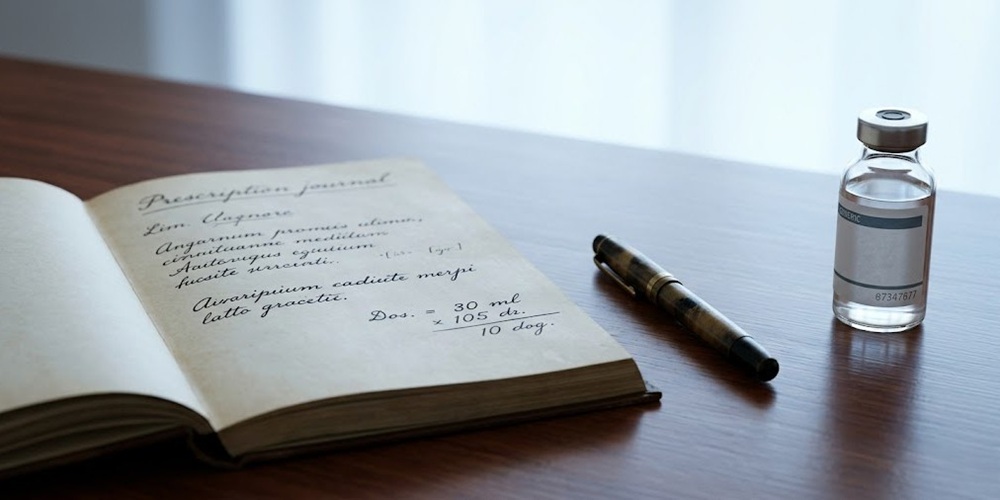 Prescription journal
Lim. Uagnore
Angarnum promeis utomo,
cinnituanne medidum
Aaitovugus eguitium
fucsite urreiati..
Awaripiium cadiute merpi
latto gracetic.
Dos. = 30 ml
× 105 dz.
10 dog.
87347877